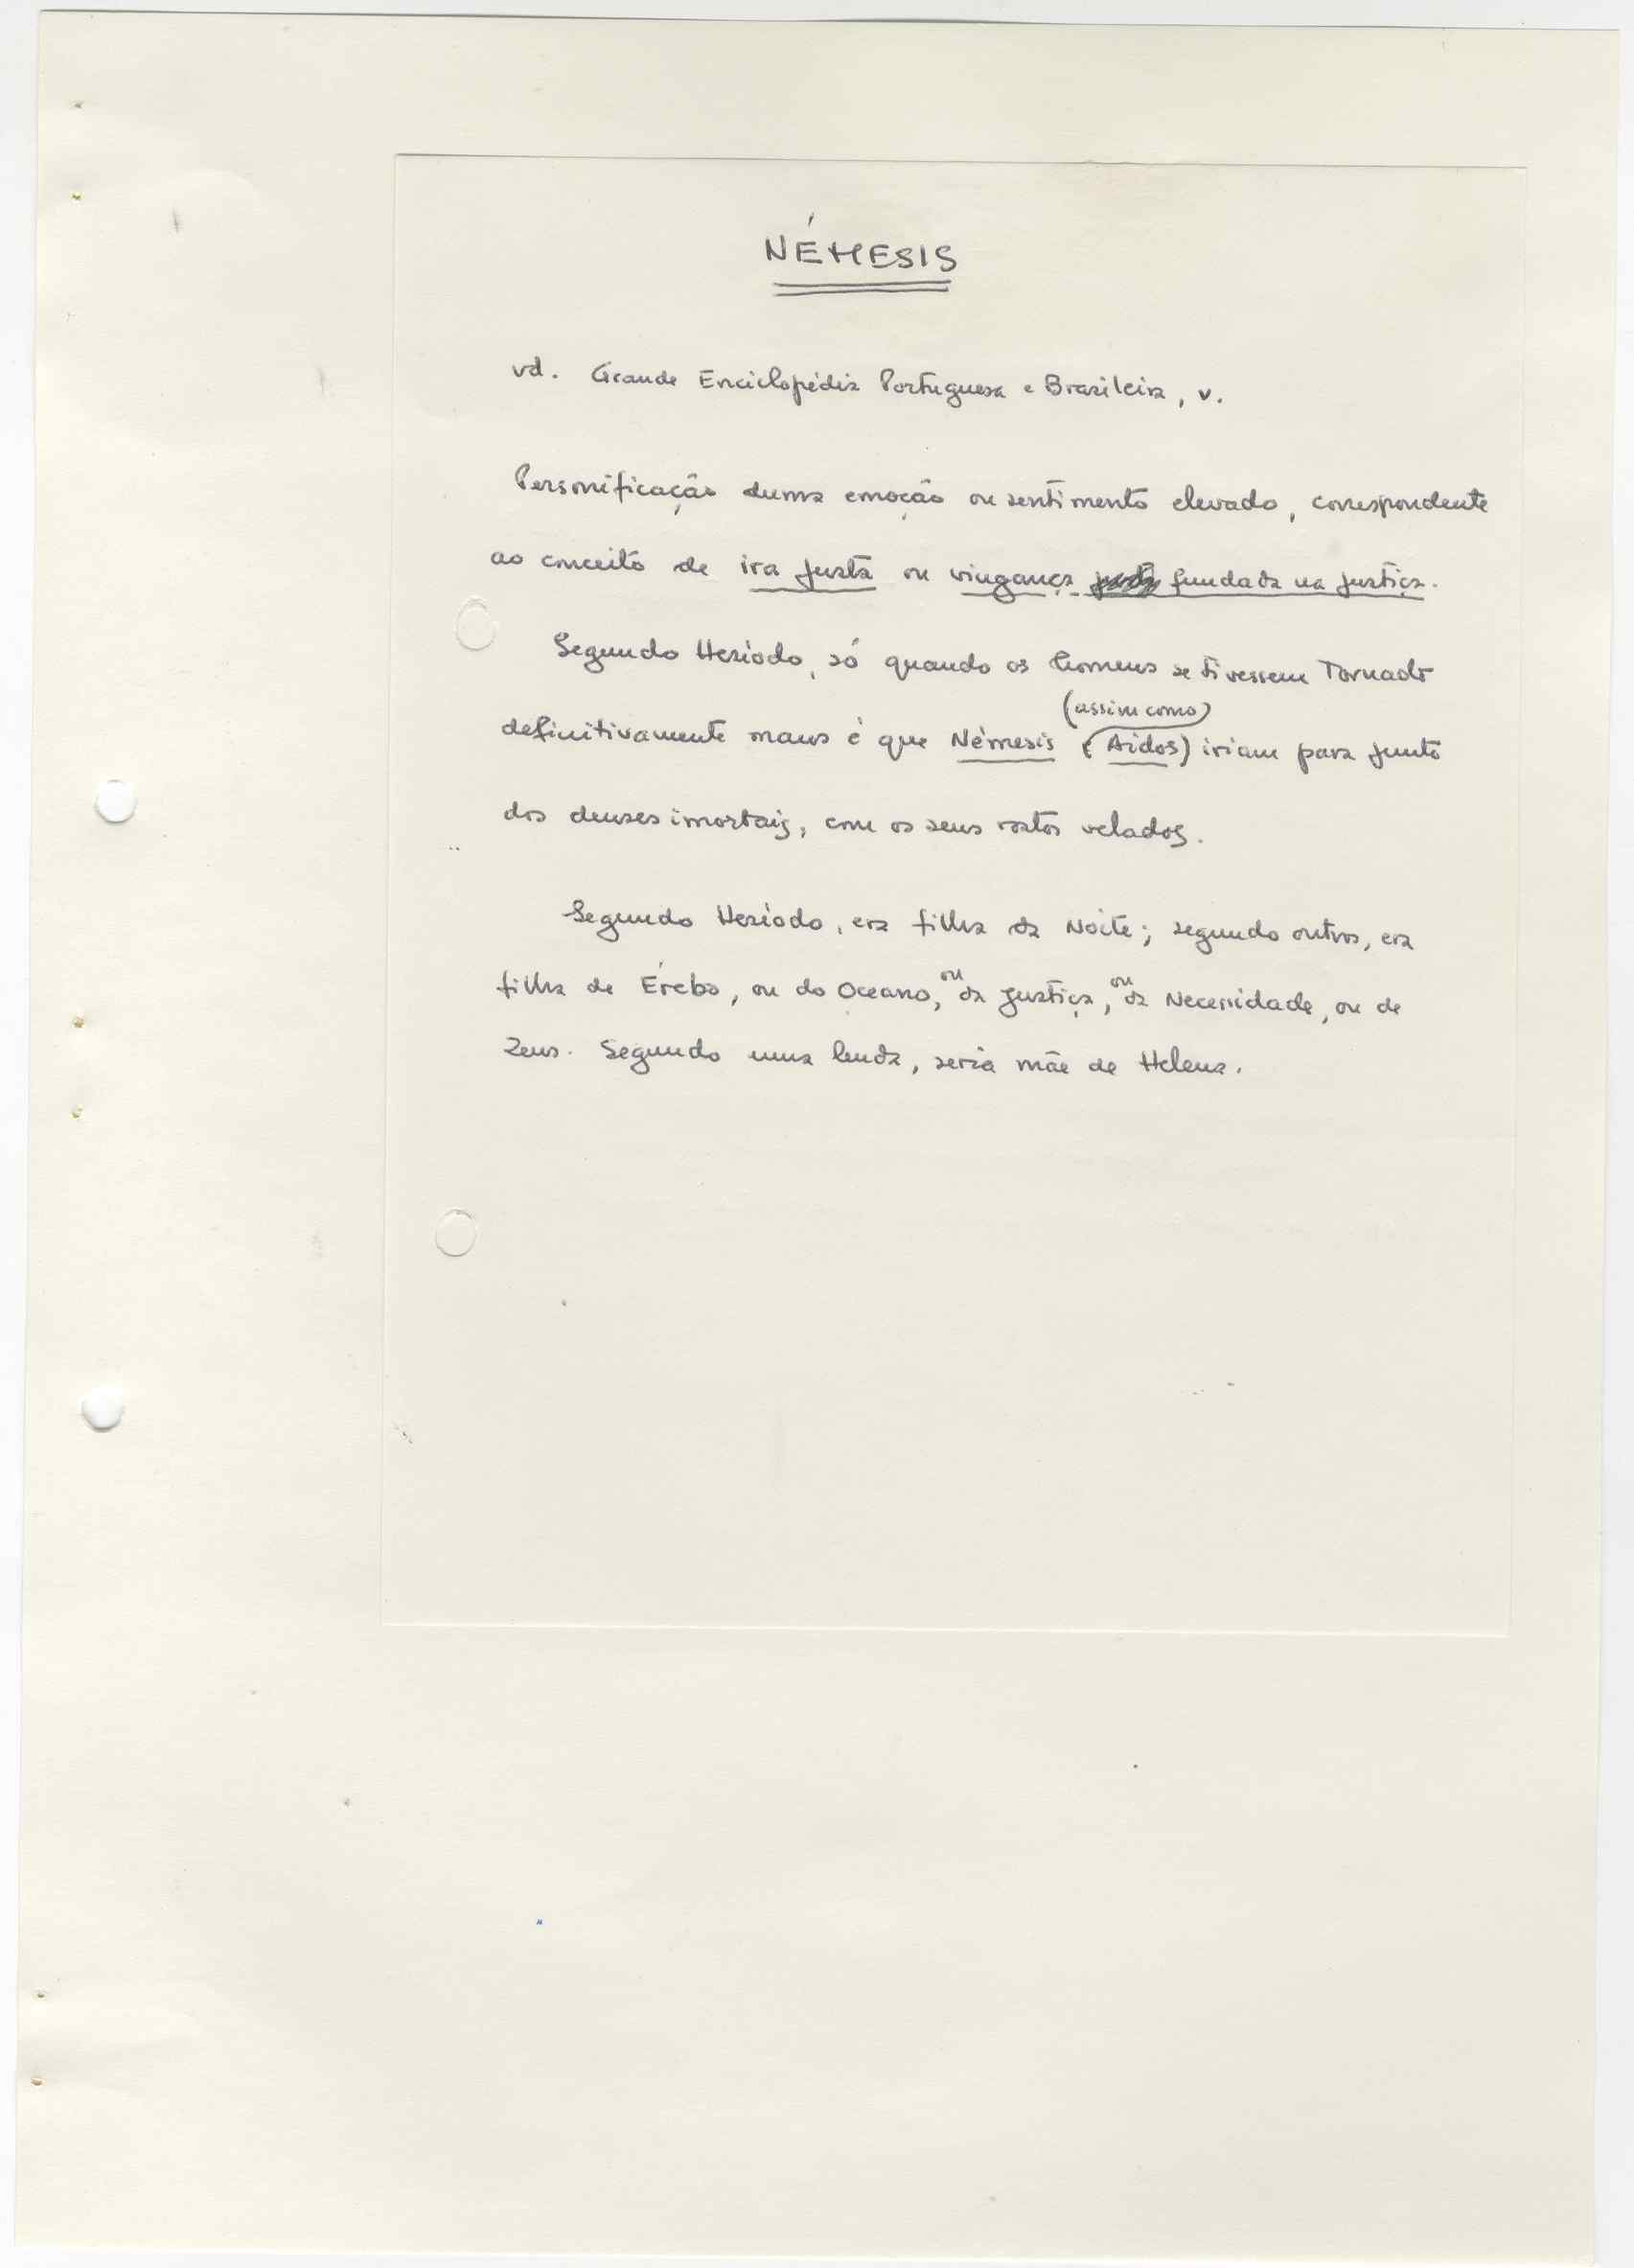 NÉMESIS
vd. Grande Enciclopédia Portuguesa e Brasileira, v.
Personificação duma emoção ou sentimento elevado, correspondente
ao conceito de ira justa ou vingança fundada na justiça.
Segundo Hesíodo, só quando os homens se tivessem tornado
(assim como)
definitivamente maus é que Némesis (Aidos) iriam para junto
dos deuses imortais, com os seus rostos velados.
Segundo Hesíodo, era filha da Noite; segundo outros, era
filha de Érebo, ou do Oceano, ou da Justiça, ou da Necessidade, ou de
Zeus. Segundo uma lenda, seria mãe de Helena.